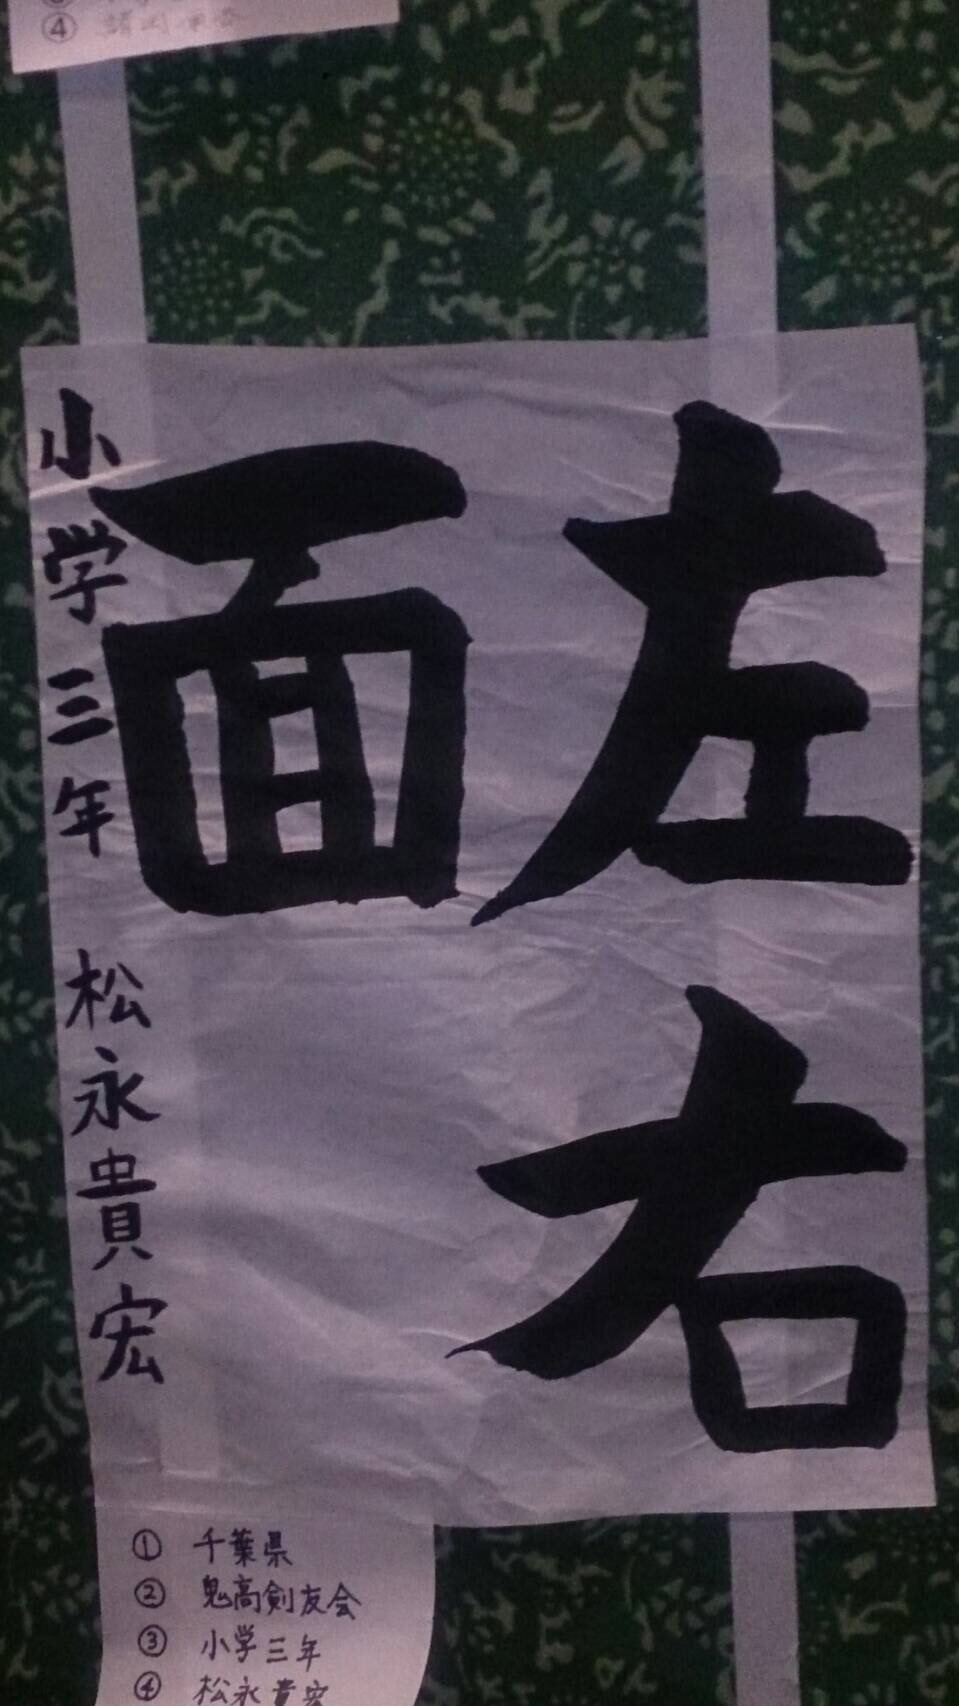 左右
面
小学三年 松永貴宏
① 千葉県
② 鬼高剣友会
③ 小学三年
④ 松永貴宏
④